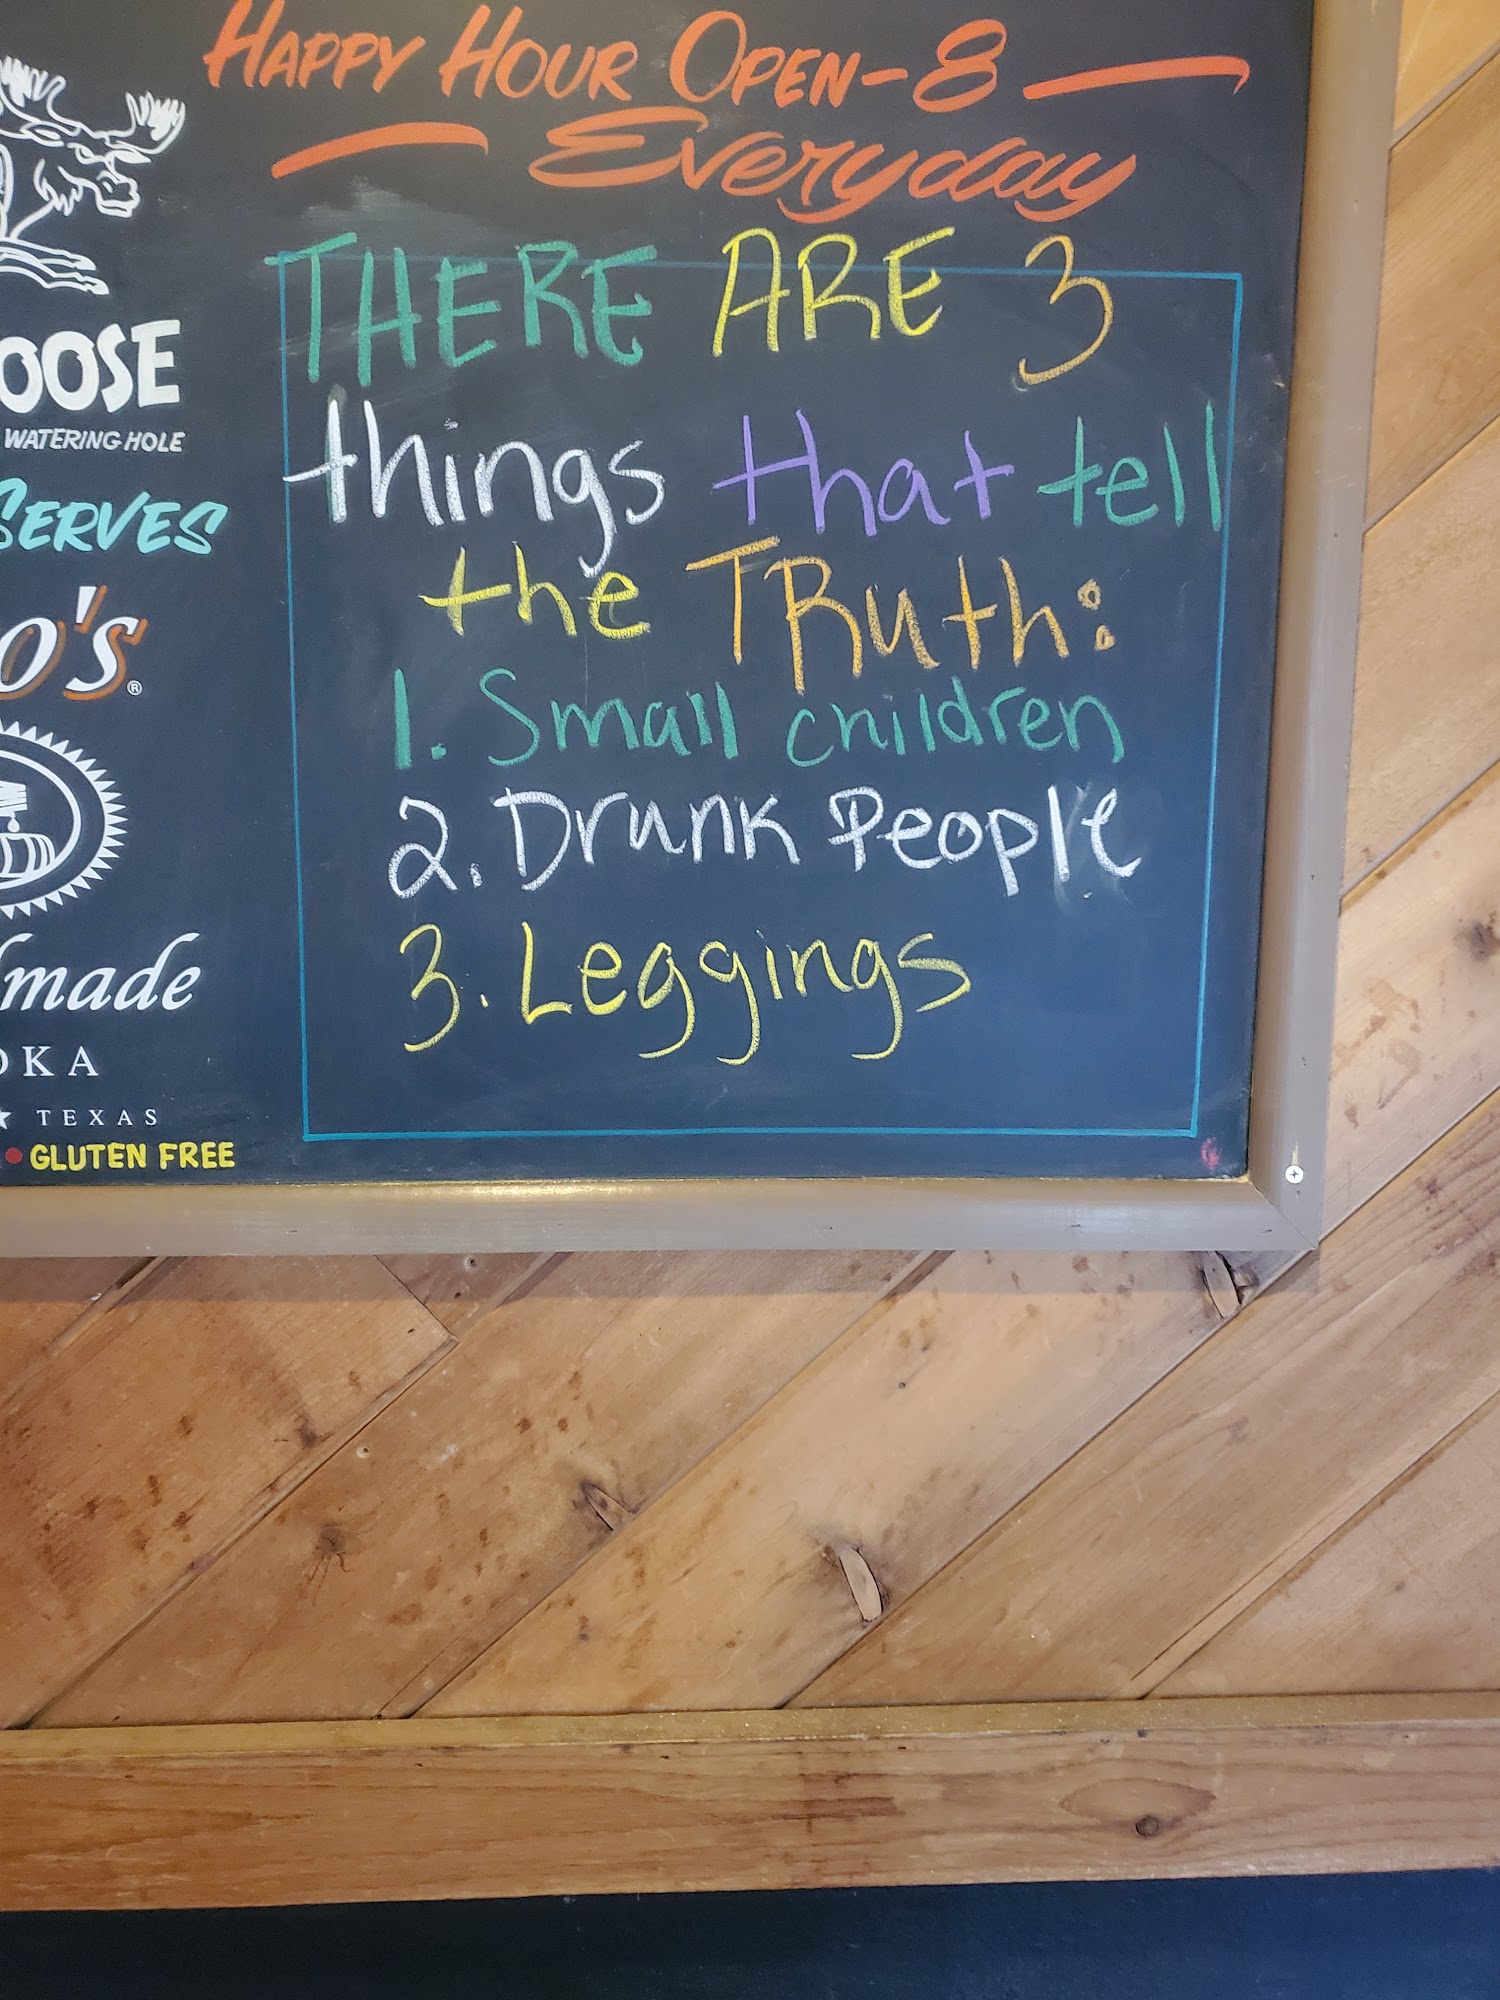 HAPPY HOUR OPEN-8
Everyday
THERE ARE 3
things that tell
the TRuth:
1. Small children
2. Drunk People
3. Leggings
OOSE
WATERING HOLE
SERVES
O'S®
made
OKA
★ TEXAS
• GLUTEN FREE